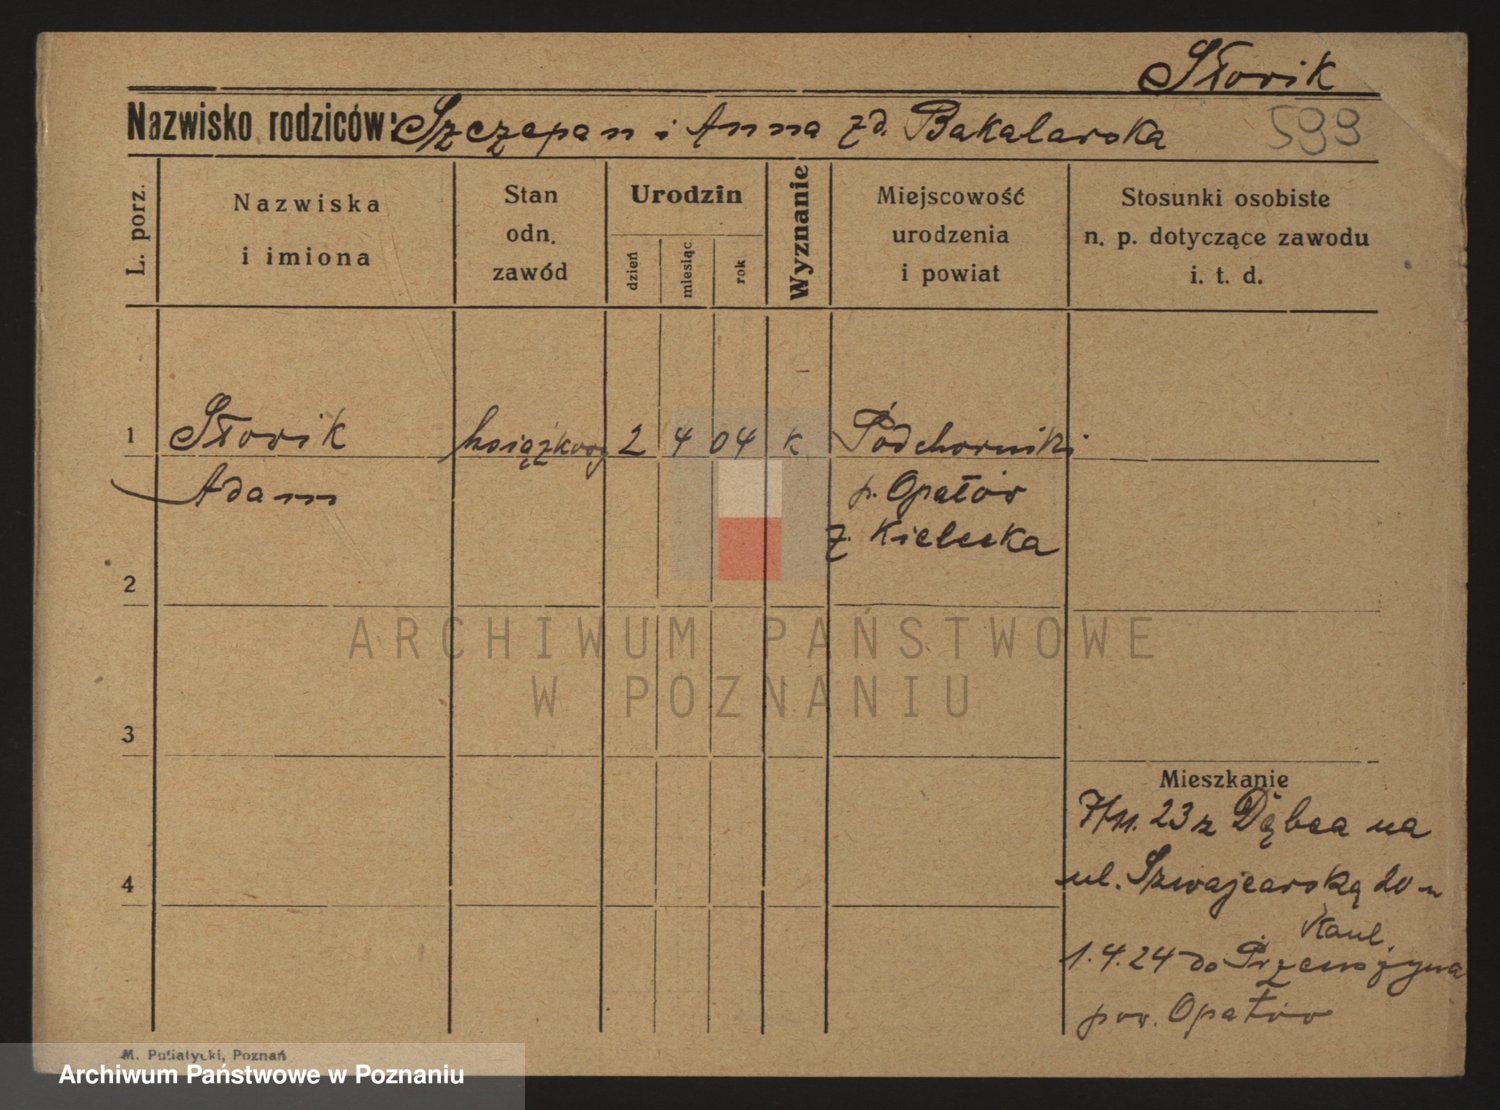 Słowik
Nazwisko rodziców: Szczepan i Anna zd. Bakalarska 599
L. porz.
Nazwiska
i imiona
Stan
odn.
zawód
Urodzin
dzień
miesiąc
rok
Wyznanie
Miejscowość
urodzenia
i powiat
Stosunki osobiste
n. p. dotyczące zawodu
i. t. d.
1 Słowik książkowy 2 4 04 k
Adam p. Opatów
z. Kielecka
2
ARCHIWUM PAŃSTWOWE
W POZNANIU
3
Mieszkanie
7/11. 23 z Dębca na
4 ul. Szwajcarską 20
1.4.24 do
pow. Opatów
M. Putiatycki, Poznań
Archiwum Państwowe w Poznaniu